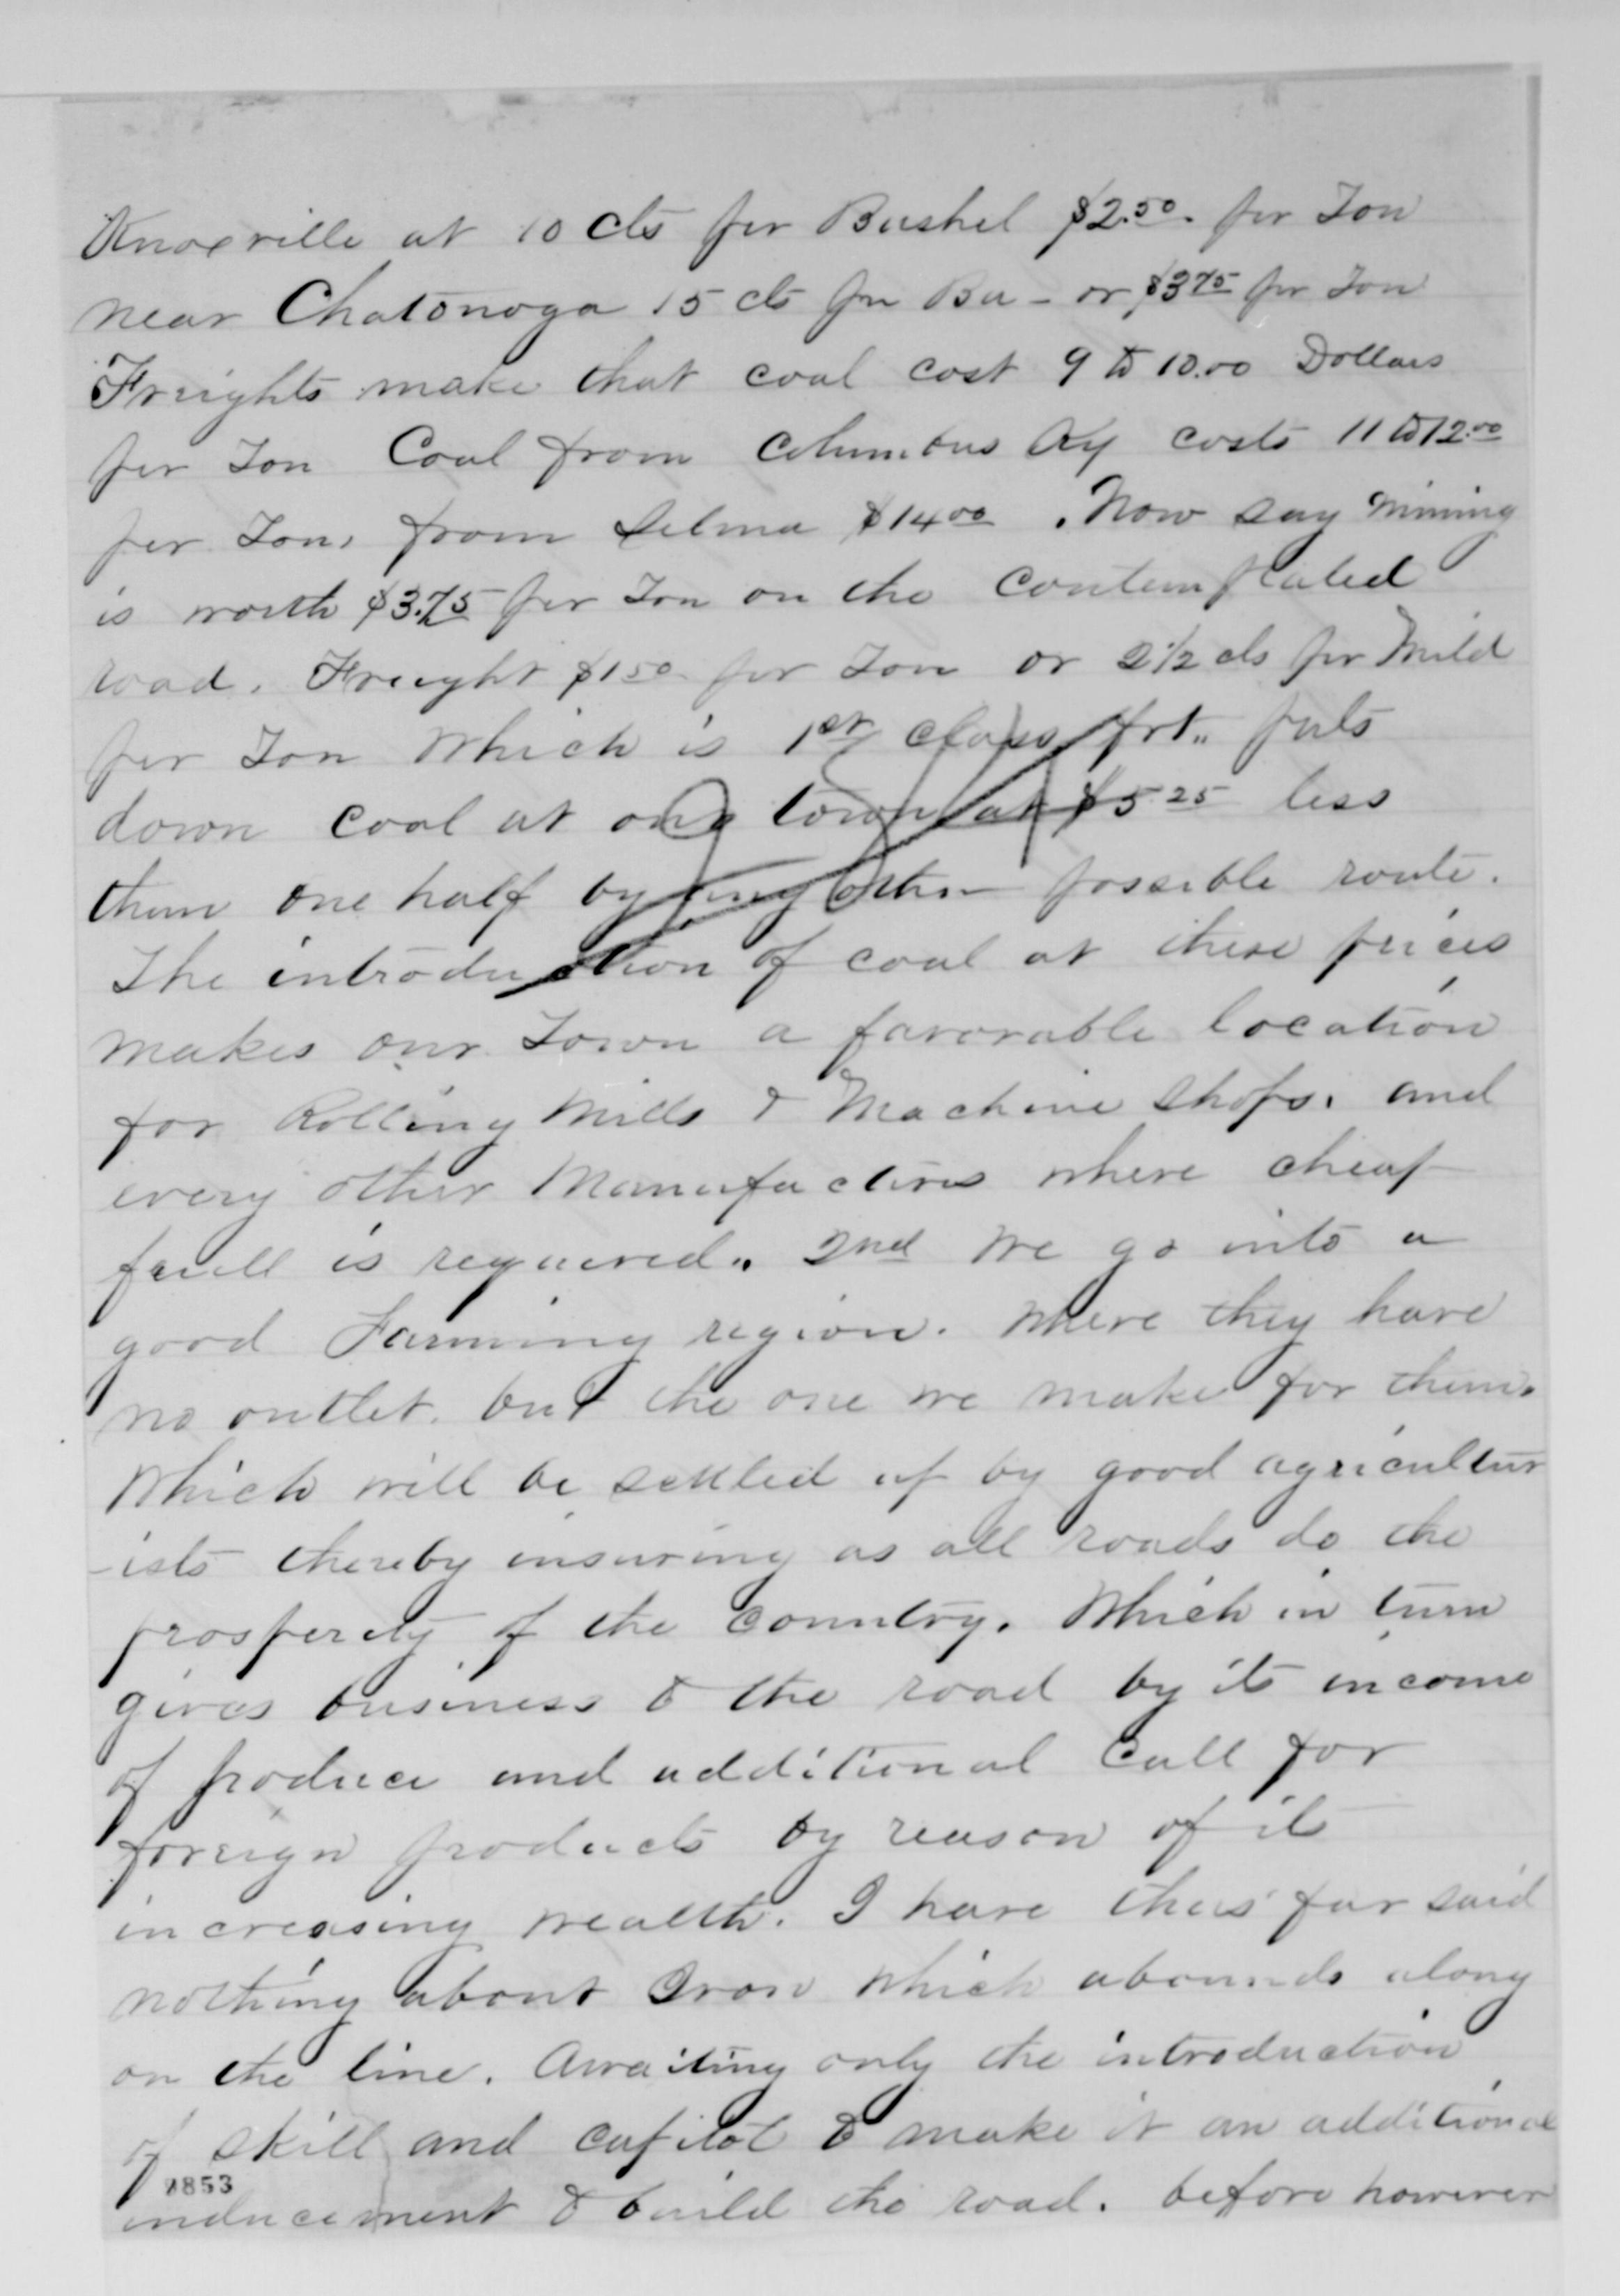 Knoxville at 10 cts per Bushel $2.50. per Ton
near Chatonoga 15 cts per Bu - or $3 75 per Ton
Freights make that coal cost 9 to 10.00 Dollars
per Ton Coal from Columbus Ky costs 11 to 12.00
per Ton, from Selma $14 00. Now say mining
is worth $3.75 per Ton on the contemplated
road. Freight $1 50 per Ton or 2 1/2 cts per Mild
per Ton which is 1st class frt.. puts
down coal at our town at $5.25 less
then one half by any other possible route.
The introduction of coal at these prices
makes our Town a favorable location
for Rolling Mills & Machine Shops. and
every other Manufactures where cheap
fuell is required.. 2nd We go into a
good Farming region. Where they have
no outlet. but the one we make for them.
Which will be settled up by good agricultur
-ists thereby insuring as all roads do the
prosperity of the country. Which in turn
gives business to the road by its income
of produce and additional call for
foreign products by reason of its
increasing wealth. I have thus far said
nothing about Iron which abounds along
on the line. Awaiting only the introduction
of skill and capital to make it an additional
1853
inducement to build the road. before however